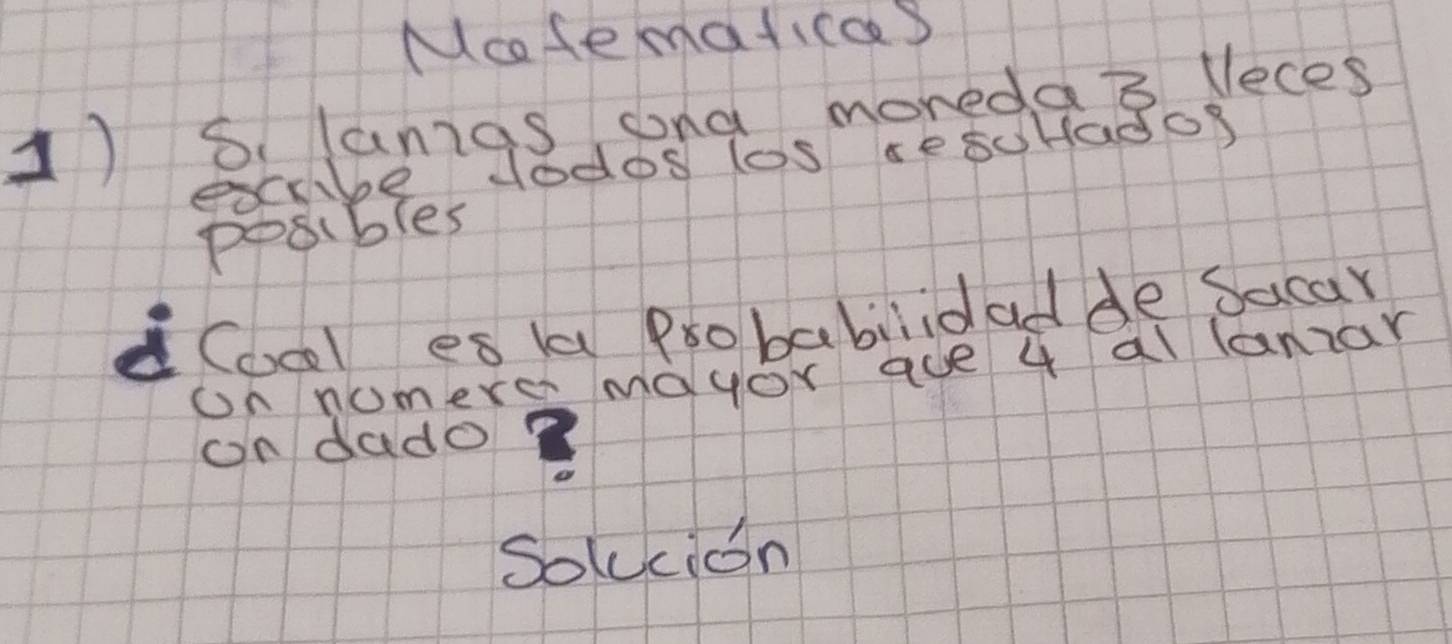 Matematicas
1) Si lanzas una moneda 3 Veces
escribe todos los resultados
posibles
¿Cual es la Probabilidad de Sacar
un numero mayor que 4 al lanzar
un dado?
Solución